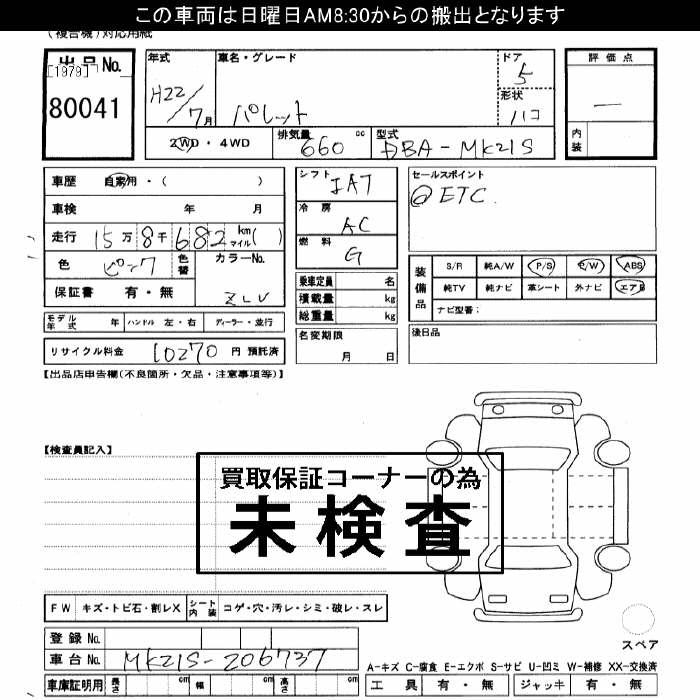 この車両は日曜日AM8:30からの搬出となります
(複合機)対応用紙
出品No.
[1979]
80041
年式
H22/7月
車名・グレード
パレット
ドア
5
形状
ハコ
評価点
—
内装
2WD・4WD
排気量
660 cc
型式
DBA-MK21S
車歴 自家用・( )
車検 年 月
走行 15万8千682 km マイル( )
色 ピンク
色替
カラーNo.
ZLV
保証書 有・無
モデル年式 年
ハンドル 左・右
ディーラー・並行
リサイクル料金 10270 円 預託済
シフト
IAT
冷房
AC
燃料
G
乗車定員 名
積載量 kg
総重量 kg
名変期限
月 日
セールスポイント
@ETC.
装備品
S/R 純A/W P/S P/W ABS
純TV 純ナビ 革シート 外ナビ エアB
ナビ型番:
後日品
【出品店申告欄(不良箇所・欠品・注意事項等)】
【検査員記入】
買取保証コーナーの為
未検査
FW キズ・トビ石・割レX
シート内装 コゲ・穴・汚レ・シミ・破レ・スレ
登録No.
車台No. MK21S-206737
車庫証明用 長さ cm 幅 cm 高さ cm
スペア
A-キズ C-腐食 E-エクボ S-サビ U-凹ミ W-補修 XX-交換済
工具 有・無 ジャッキ 有・無